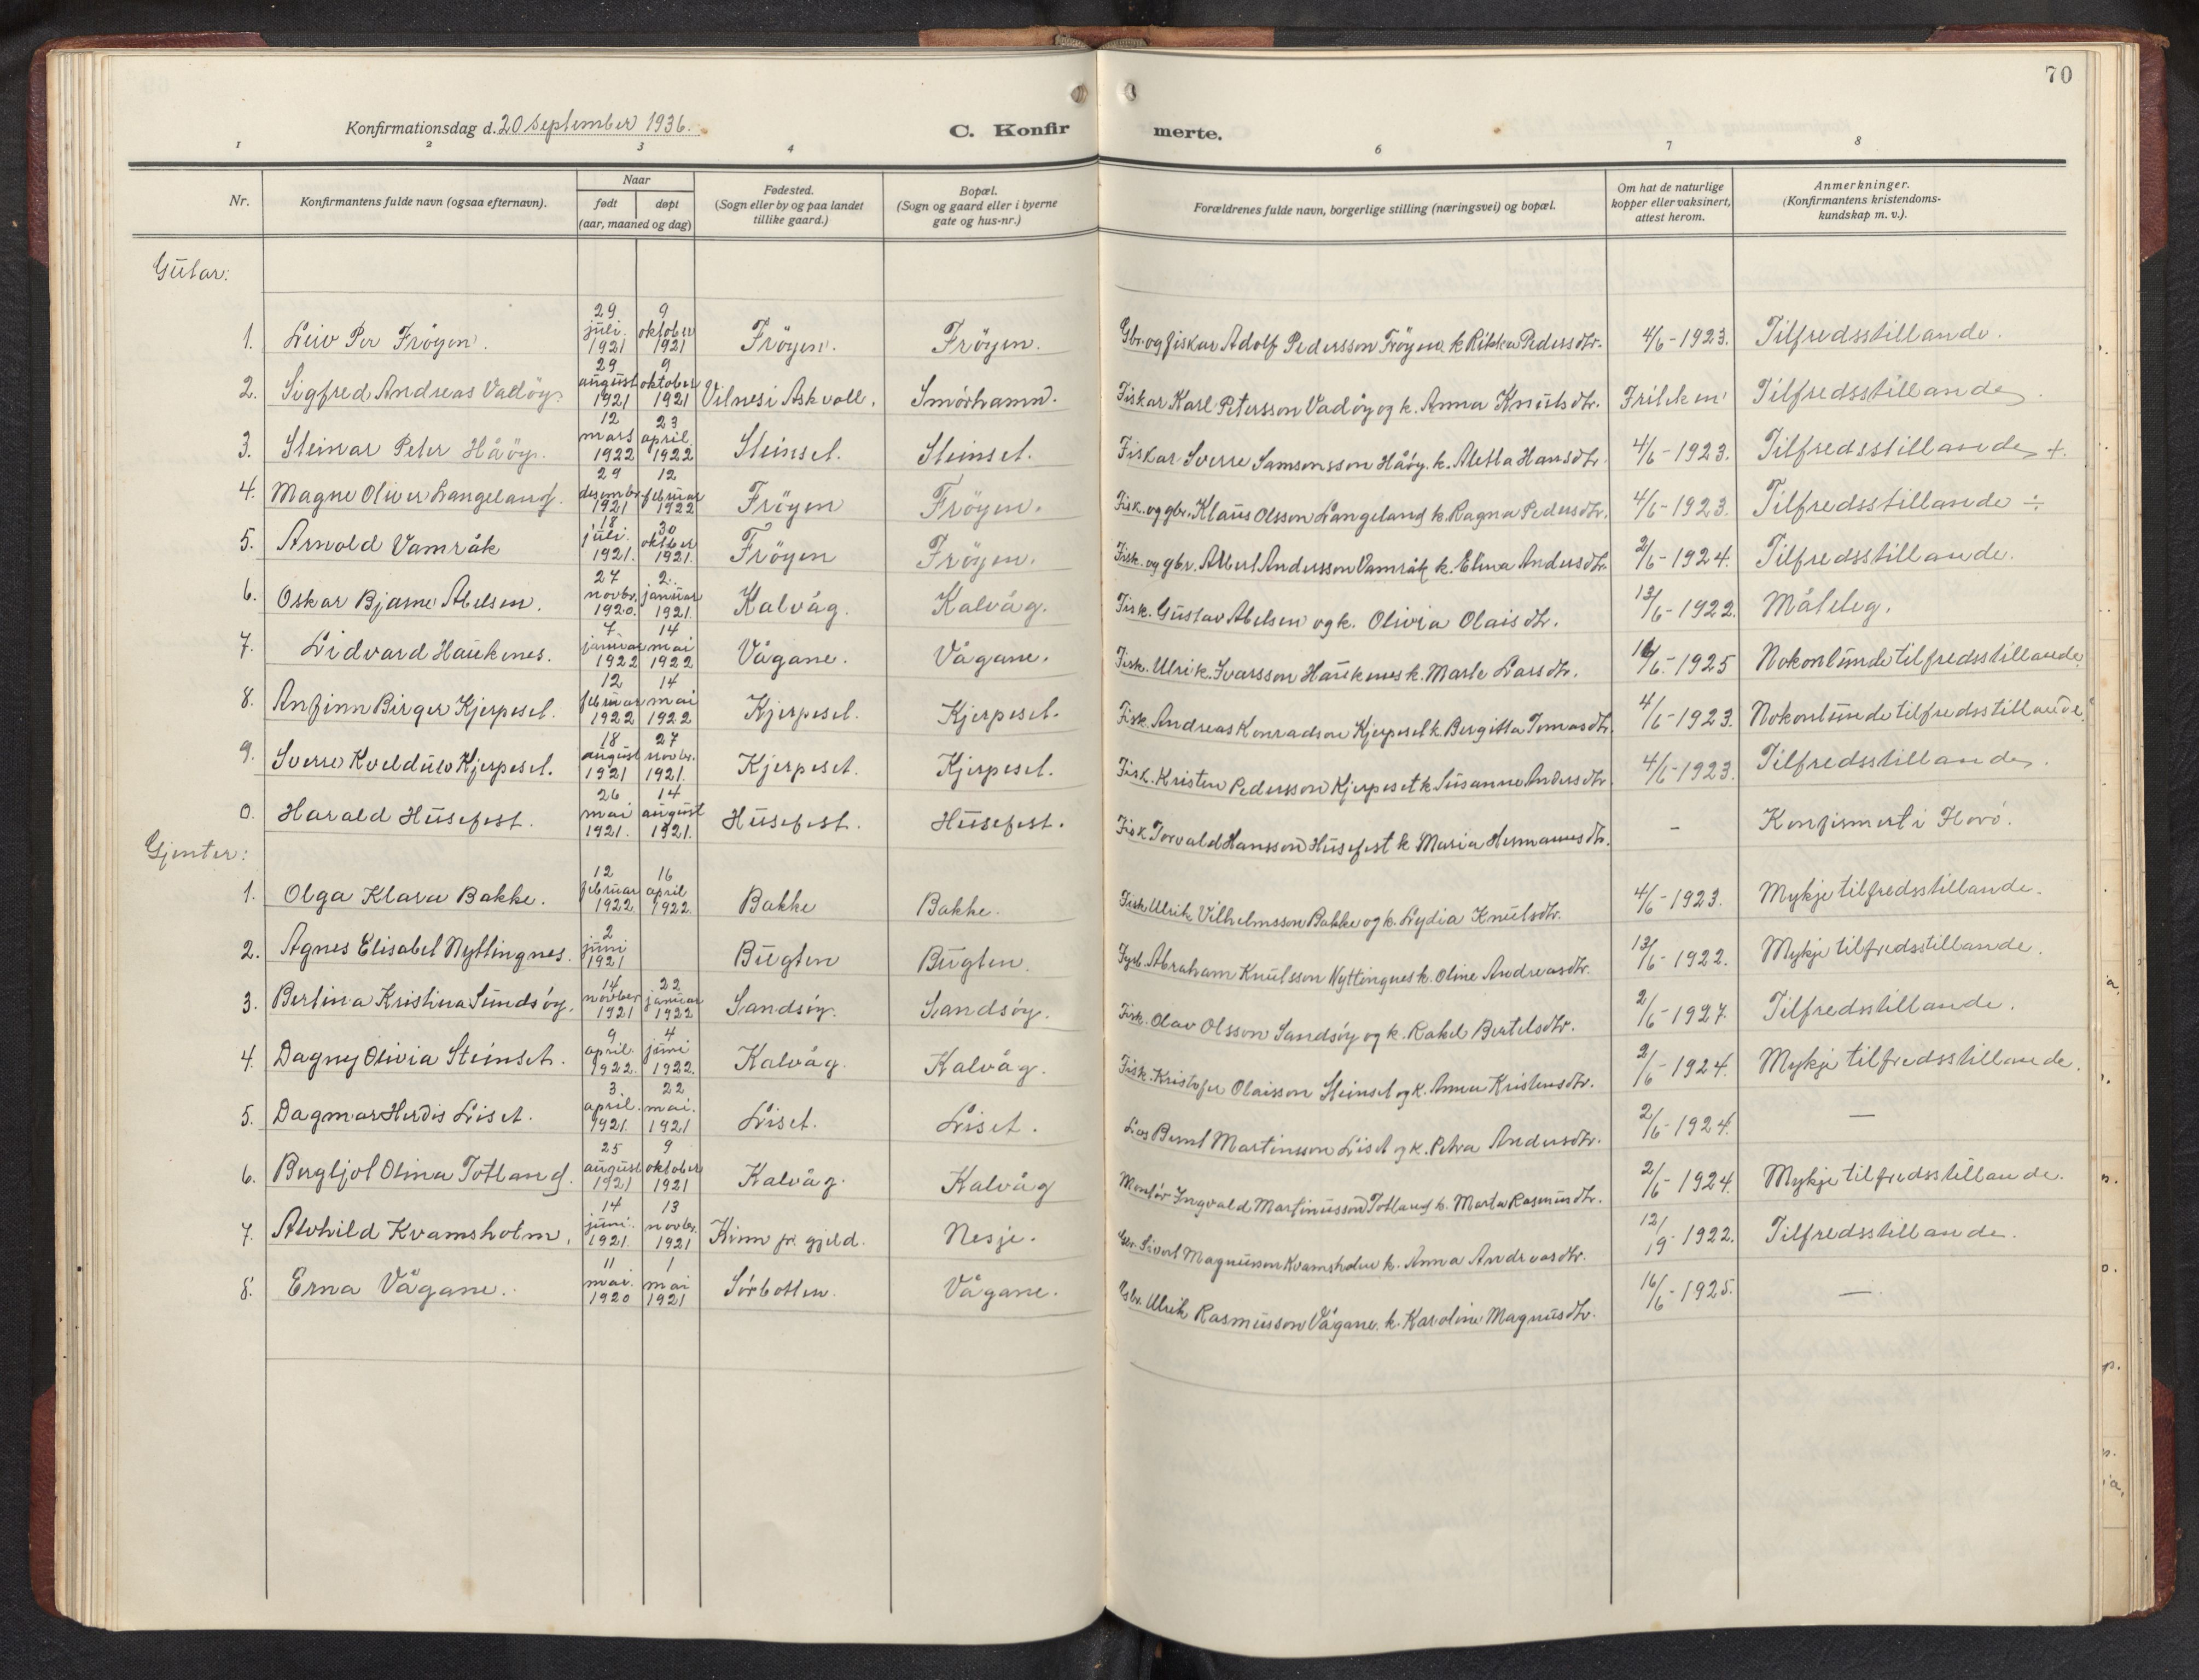 70
Konfirmationsdag d. 20 September 1936.
C. Konfirmerte.
1 2 3 4 6 7 8
Nr.
Konfirmantens fulde navn (ogsaa efternavn).
Naar
født døpt
(aar, maaned og dag)
Fødested.
(Sogn eller by og paa landet
tillike gaard.)
Bopæl.
(Sogn og gaard eller i byerne
gate og hus-nr.)
Forældrenes fulde navn, borgerlige stilling (næringsvei) og bopæl.
Om hat de naturlige
kopper eller vaksinert,
attest herom.
Anmerkninger.
(Konfirmantens kristendoms-
kundskap m. v.).
Gutar:
1. Leiv Per Fröyen. 29 juli 1921 9 oktober 1921 Fröyen. Fröyen. Gbr. og fiskar Adolf Pedersson Fröyen k Rikka Pedersdtr. 4/6-1923. Tilfredsstillande.
2. Sigfred Andreas Vadöy. 29 august 1921 9 oktober 1921 Vilnes i Askvoll. Smörhamn. Fiskar Karl Petersson Vadöy og k. Anna Knutsdtr. Tilfredsstillande.
3. Steinar Peter Håöy. 12 mars 1922 23 april 1922 Steinset. Steinset. Fiskar Sverre Samsonsson Håöy. k. Aletta Hansdtr. 4/6-1923. Tilfredsstillande +.
4. Magne Oliver Langeland. 29 desembr. 1921 12 februar 1922 Fröyen Fröyen. Fisk. og gbr. Klaus Olsson Langeland k. Ragna Pedersdtr. 4/6-1923. Tilfredsstillande ÷
5. Arnold Vamråk 18 juli. 1921. 30 oktber 1921. Fröyen Fröyen. Fisk. og gbr. Albert Andersson Vamråk k. Elina Andersdtr. 2/6-1924. Tilfredsstillande.
6. Oskar Bjarne Abelsen. 27 novbr. 1920. 2. januar 1921. Kalvåg. Kalvåg. Fisk. Gustav Abelsen og k. Olivia Olaisdtr. 13/6-1922. Måteleg.
7. Lidvard Haukenes. 7 januar 1922 14 mai 1922 Vågane. Vågane. Fisk. Ulrik. Ivarsson Haukenes k. Marte Larsdtr. 16/6-1925 Nokonlunde tilfredsstillande.
8. Anfinn Birger Kjerpeset. 12 februar 1922 14 mai 1922 Kjerpeset. Kjerpeset. Fisk. Andreas Konradson Kjerpeset k. Bergitta Tomasdtr. 4/6-1923. Nokonlunde tilfredsstillande.
9. Sverre Kveldulv Kjerpeset. 18 august 1921 27 novbr. 1921. Kjerpeset. Kjerpeset. Fisk. Kristen Pedersson Kjerpeset k. Susanne Andersdtr. 4/6-1923. Tilfredsstillande.
0. Harald Husefest. 26 mai 1921. 14 august 1921. Husefest. Husefest. Fisk. Torvald Hansson Husefest k Maria Hermannsdtr. - Konfirmert i Florö.
Gjenter:
1. Olga Klara Bakke. 12 februar 1922 16 april 1922. Bakke Bakke. Fisk Ulrik Vilhelmsson Bakke og k. Lydia Knutsdtr. 4/6-1923. Mykje tilfredsstillande.
2. Agnes Elisabet Nyttingnes. 2 juni 1921 Bugten Bugten. Abraham Knutsson Nyttingnes k. Oline Andreasdtr. 13/6-1922. Mykje tilfredsstillande.
3. Bertina Kristina Sundsöy. 14 novber 1921 22 januar 1922 Sandsöy. Sandsöy. Fisk. Olav Olsson Sandsöy og k. Rakel Bertelsdtr. 2/6-1927. Tilfredsstillande.
4. Dagny Olivia Steinset. 9 april 1922. 4 juni 1922. Kalvåg. Kalvåg. Fisk. Kristofer Olaisson Steinset og k. Anna Kristensdtr. 2/6-1924. Mykje tilfredsstillande.
5. Dagmar Herdis Liset. 3. april. 1921. 22 mai. 1921 Liset. Liset. Bernt Martinsson Liset og k. Petra Andersdtr. 2/6-1924. —
6. Bergljot Olina Totland. 25 august 1921 9 oktober 1921 Kalvåg. Kalvåg Montör Ingvald Martinusson Totland k. Marta Rasmusdtr. 2/6-1924. Mykje tilfredsstillande.
7. Alvhild Kvamsholm. 14 juni. 1921. 13 novbr. 1921 Kinn pr. gjeld. Nesje. Gbr. Sivert Magnusson Kvamsholm k. Anna Andreasdtr. 12/9-1922. Tilfredsstillande.
8. Erna Vågane. 11 mai. 1920 1 mai 1921 Sörbotten. Vågane. Gbr. Ulrik Rasmusson Vågane. k. Karoline Magnusdtr. 16/6-1925. —